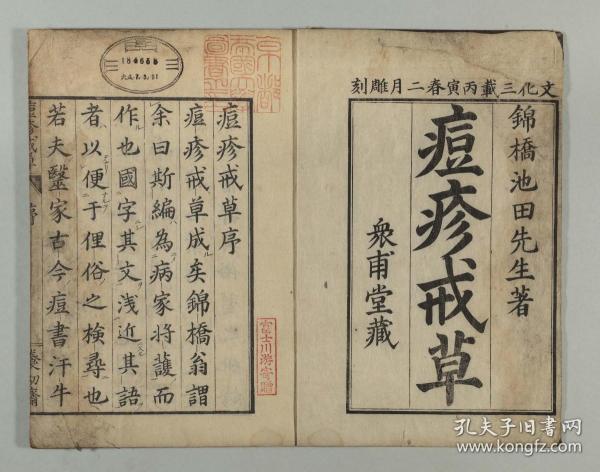 文化三載丙寅春二月雕刻
錦橋池田先生著
痘疹戒草
衆甫堂藏
痘疹戒草序
痘疹戒草成矣錦橋翁謂
余曰斯編為病家將護而
作也國字其文浅近其語
者以便于俚俗之檢尋也
若夫毉家古今痘書汗牛
184655
大正7.3.31
富士川游寄贈
孔夫子旧书网
www.kongfz.com